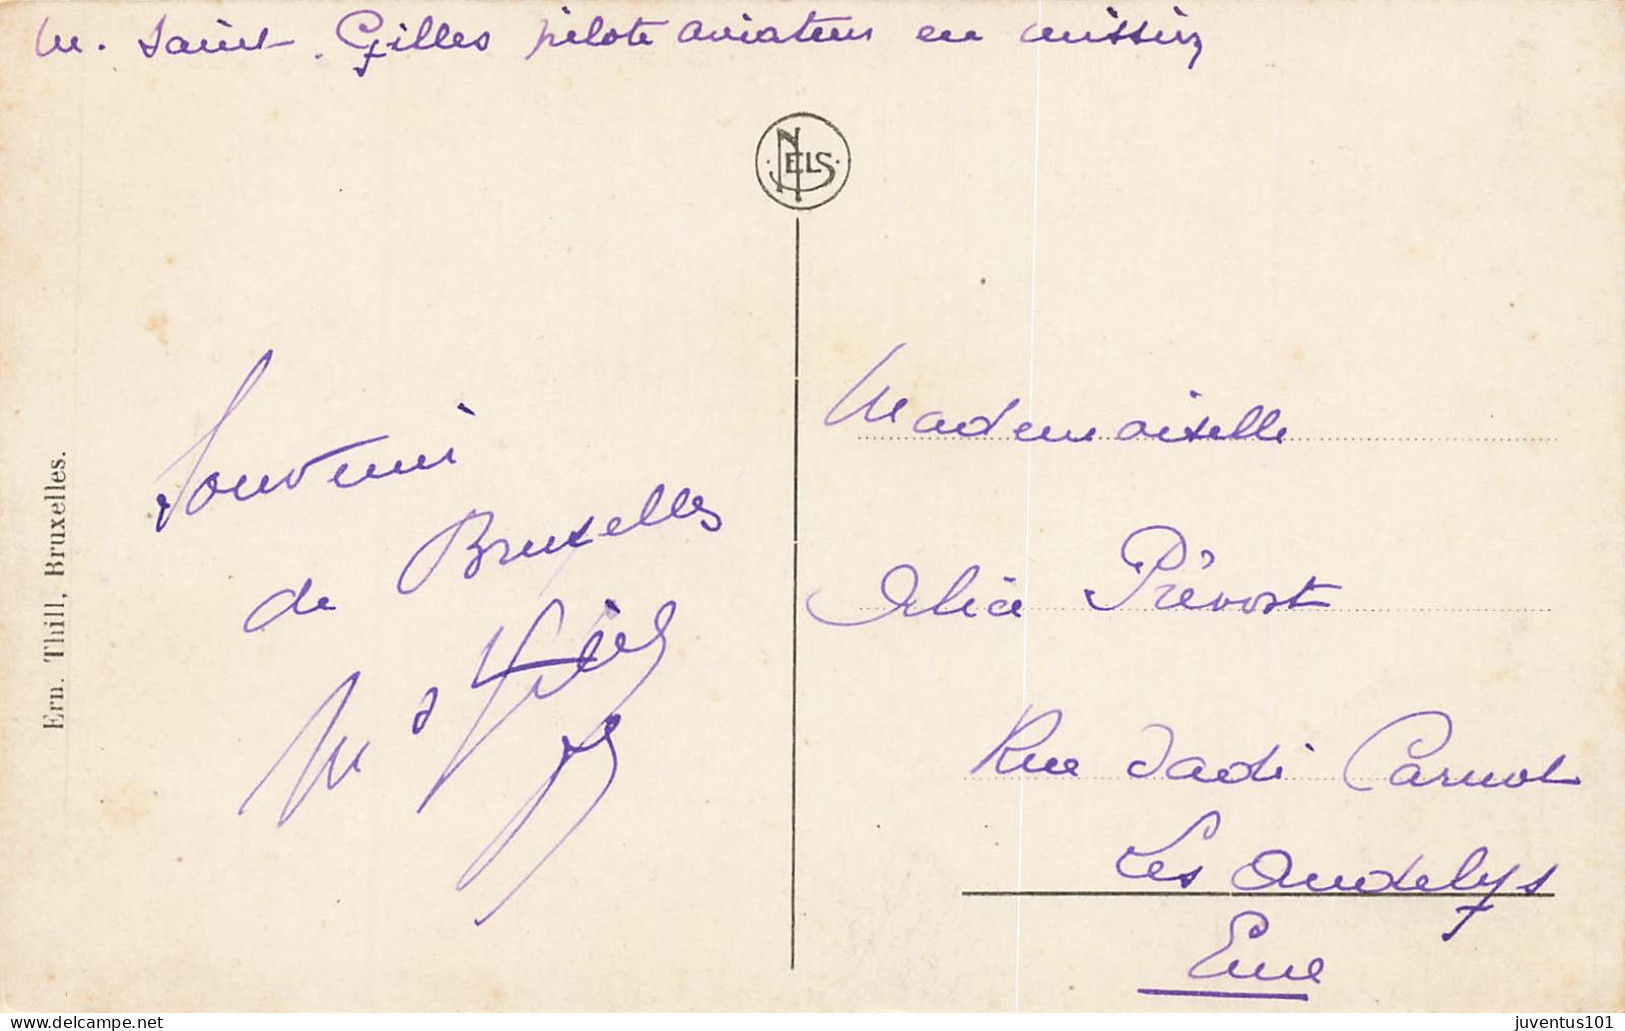 M. Saint. Gilles pilote aviateur en mission
NELS
Souvenir
de Bruxelles
Mademoiselle
Alice Prévost
Rue Sadi Carnot
Les Andelys
Eure
Ern. Thill, Bruxelles.
www.delcampe.net
juventus101